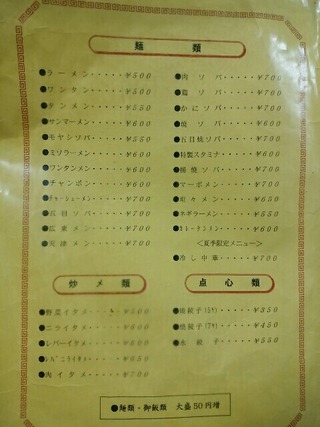 麺類
●ラーメン・・・・・¥500
●ワンタン・・・・・¥500
●タンメン・・・・・¥550
●サンマーメン・・・¥600
●モヤシソバ・・・・¥550
●ミソラーメン・・・¥600
●ワンタンメン・・・¥600
●チャンポン・・・・¥600
●チャーシューメン・・・¥700
●五目ソバ・・・・・¥700
●広東メン・・・・・¥700
●天津メン・・・・・¥700
●肉ソバ・・・・・¥700
●鶏ソバ・・・・・¥700
●かにソバ・・・・¥700
●焼ソバ・・・・・¥600
●五目焼ソバ・・・¥700
●特製スタミナ・・¥600
●揚焼ソバ・・・・¥700
●マーボメン・・・¥700
●坦々メン・・・・¥650
●ネギラーメン・・¥550
<夏季限定メニュー>
●冷し中華・・・・¥700
炒メ類
●野菜イタメ
●ニライタメ
●レバーイタメ
●肉イタメ・・・・・¥700
点心類
●焼餃子(5ケ)・・・¥350
●焼餃子(7ケ)・・・¥450
●水餃子・・・・・¥550
●麺類・御飯類 大盛50円増